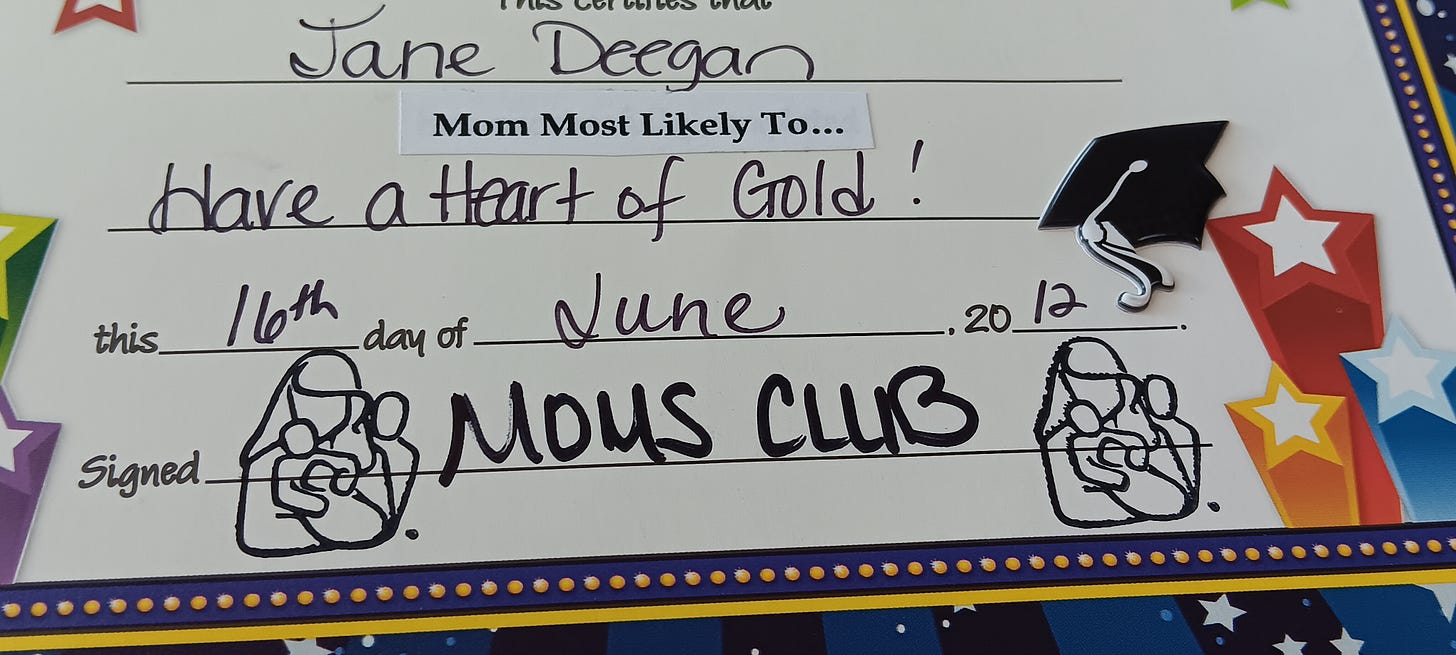 This certifies that
Jane Deegan
Mom Most Likely To...
Have a Heart of Gold!
this 16th day of June, 20 12.
Signed MOMS CLUB